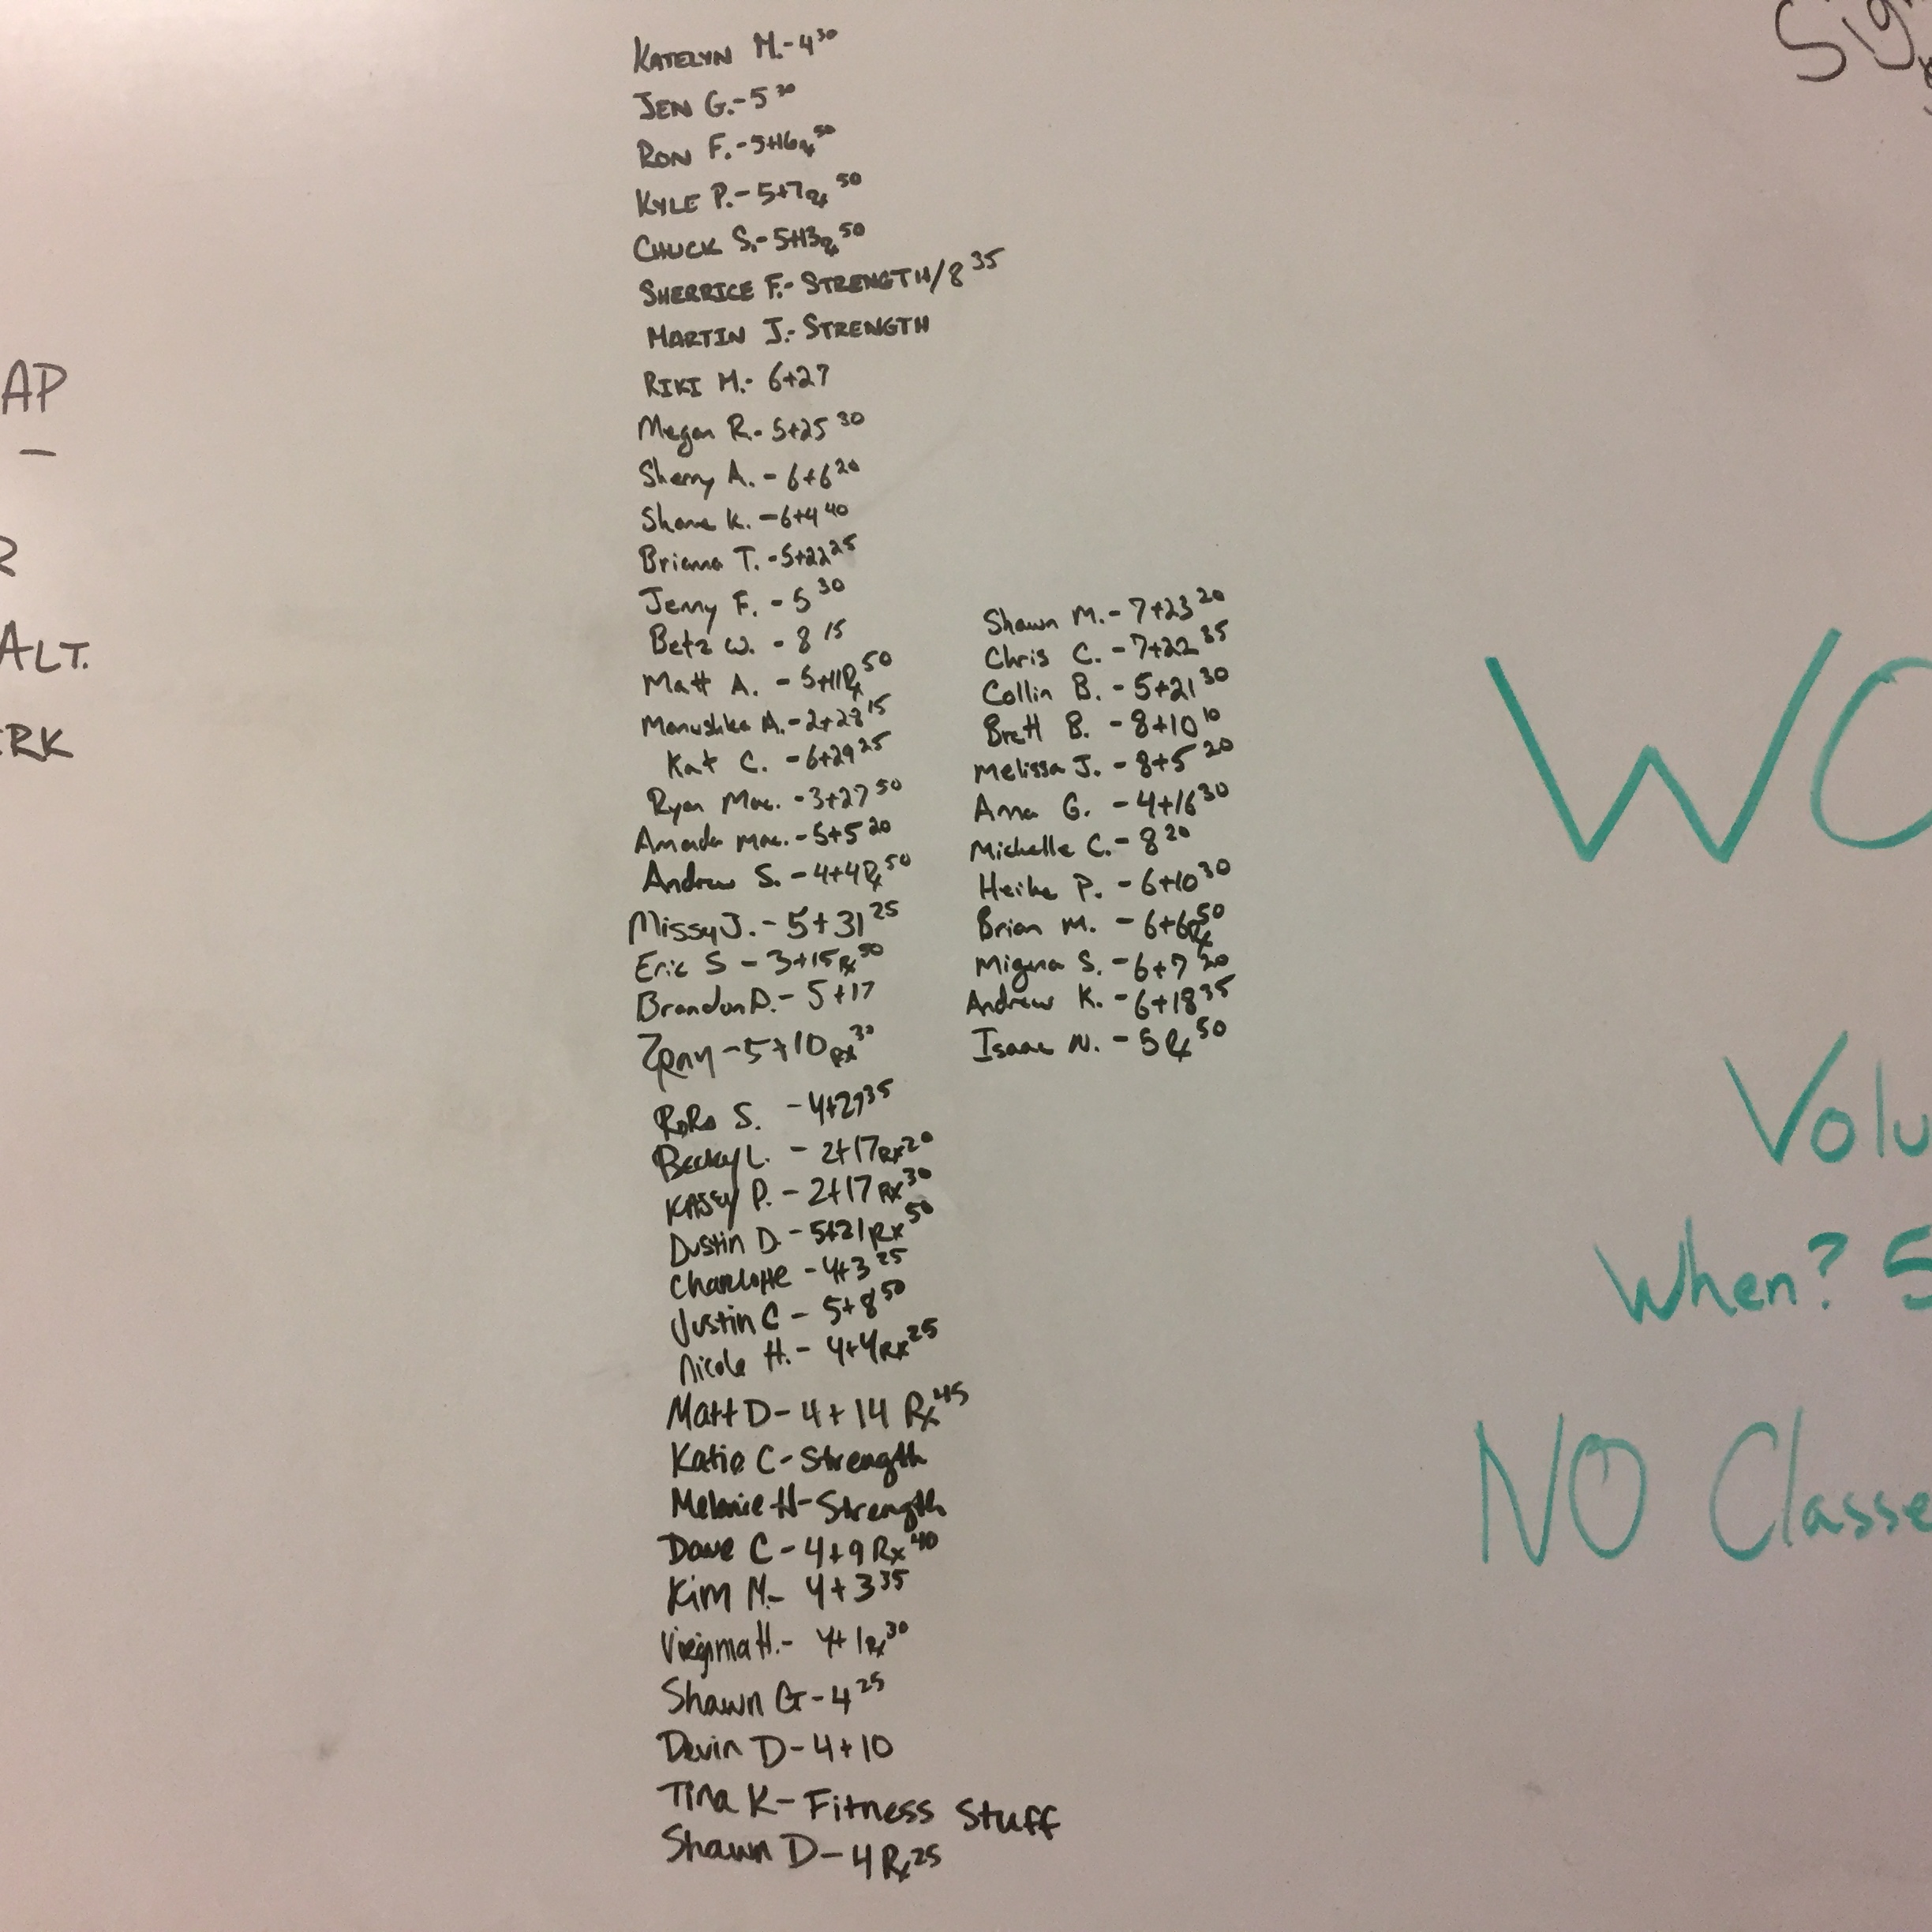 Sig
AP
—
R
ALT.
ERK
KATELYN M.- 4 30
JEN G.- 5 30
RON F.- 5+16 Rx 50
KYLE P.- 5+7 Rx 50
CHUCK S.- 5+13 Rx 50
SHERRICE F.- STRENGTH/8 35
MARTIN J.- STRENGTH
RIKI M.- 6+27
Megan R.- 5+25 30
Sherry A. - 6+6 20
Shane K. - 6+4 40
Briana T. - 5+22 25
Jenny F. - 5 30
Betz W. - 8 15
Matt A. - 5+11 Rx 50
Manushka A. - 2+28 15
Kat C. - 6+29 25
Ryan Mac. - 3+27 50
Amanda Mac. - 5+5 20
Andrew S. - 4+4 Rx 50
Missy J. - 5+31 25
Eric S - 3+15 Rx 50
Brandon D. - 5+17
- 5+10 Rx 30
RoRo S. - 4+27 35
Becky L. - 2+17 Rx 20
KASEY P. - 2+17 Rx 30
Dustin D. - 5+21 Rx 50
Charlotte - 4+3 25
Justin C - 5+8 50
Nicole H. - 4+4 Rx 25
Matt D - 4+14 Rx 45
Katie C - Strength
Melanie H - Strength
Dave C - 4+9 Rx 40
Kim M - 4+3 35
Virginia H. - 4+1 Rx 30
Shawn G - 4 25
Devin D - 4+10
Tina K - Fitness Stuff
Shawn D - 4 Rx 25
Shawn M. - 7+23 20
Chris C. - 7+22 35
Collin B. - 5+21 30
Brett B. - 8+10 10
Melissa J. - 8+5 20
Anna G. - 4+16 30
Michelle C. - 8 20
Heike P. - 6+10 30
Brian M. - 6+6 Rx 50
Migna S. - 6+7 20
Andrew K. - 6+18 35
Isaac N. - 5 Rx 50
WO
Volu
When? 5
NO Classe